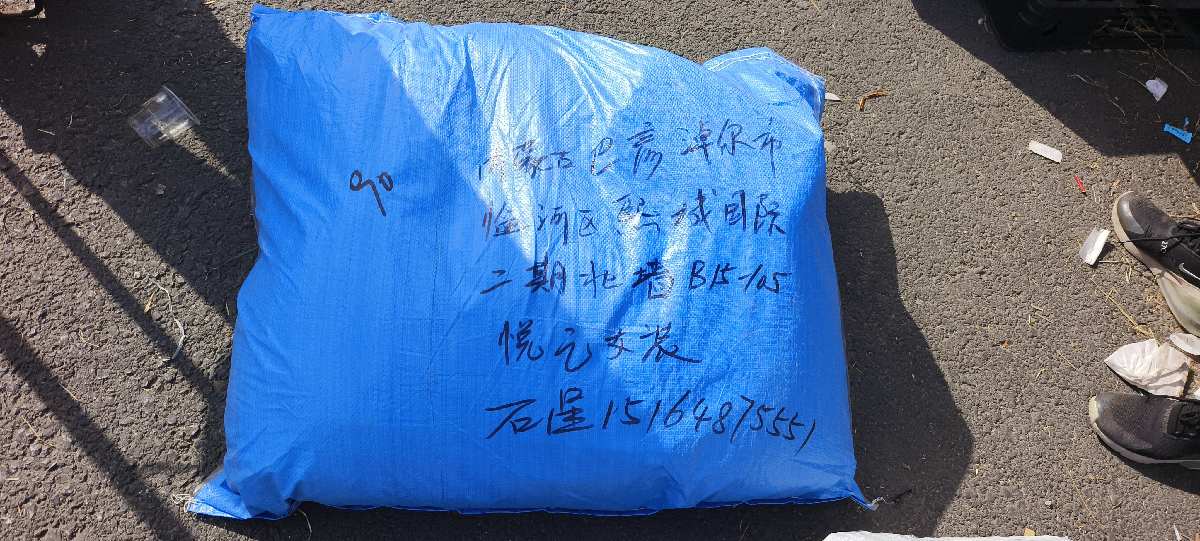 90
内蒙古巴彦淖尔市
临河区熙城国际
二期北墙B15-105
悦己女装
石星15164875551